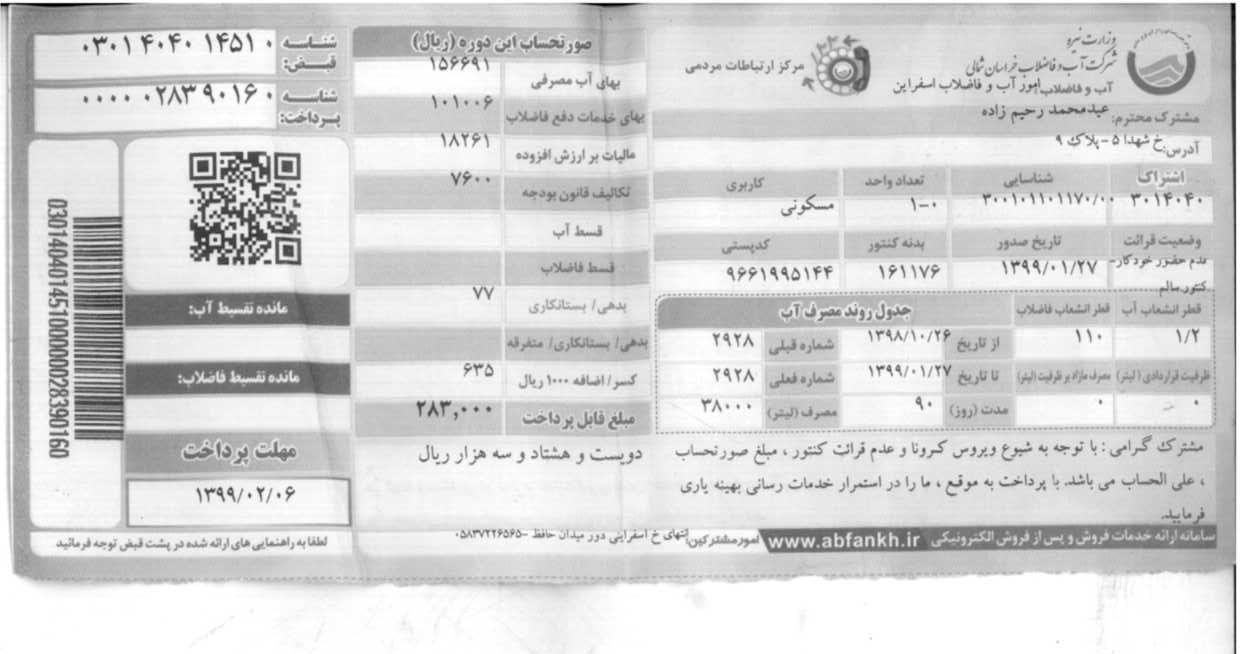 وزارت نیرو
شرکت آب و فاضلاب خراسان شمالی
آب و فاضلاب امور آب و فاضلاب اسفراین
۱۲۲
مرکز ارتباطات مردمی
مشترک محترم: عیدمحمد رحیم زاده
آدرس: خ شهدا ۵ - پلاک ۹
اشتراک شناسایی تعداد واحد کاربری
۳۰۱۴۰۴۰ ۳۰۰۱۰۱۱۰۱۱۷۰/۰۰ ۱-۰ مسکونی
وضعیت قرائت تاریخ صدور بدنه کنتور کدپستی
عدم حضور خودکار- کنتور سالم ۱۳۹۹/۰۱/۲۷ ۱۶۱۱۷۶ ۹۶۶۱۹۹۵۱۴۴
قطر انشعاب آب قطر انشعاب فاضلاب جدول روند مصرف آب
۱/۲ ۱۱۰ از تاریخ ۱۳۹۸/۱۰/۲۶ شماره قبلی ۲۹۲۸
ظرفیت قراردادی (لیتر) مصرف مازاد بر ظرفیت (لیتر) تا تاریخ ۱۳۹۹/۰۱/۲۷ شماره فعلی ۲۹۲۸
۰ ۰ مدت (روز) ۹۰ مصرف (لیتر) ۳۸۰۰۰
مشترک گرامی : با توجه به شیوع ویروس کرونا و عدم قرائت کنتور ، مبلغ صورتحساب
، علی الحساب می باشد. با پرداخت به موقع ، ما را در استمرار خدمات رسانی بهینه یاری
فرمایید.
سامانه ارائه خدمات فروش و پس از فروش الکترونیکی www.abfankh.ir امور مشترکین: انتهای خ اسفراینی دور میدان حافظ -۰۵۸۳۷۲۲۶۵۶۵
صورتحساب این دوره (ریال)
بهای آب مصرفی ۱۵۶۶۹۱
بهای خدمات دفع فاضلاب ۱۰۱۰۰۶
مالیات بر ارزش افزوده ۱۸۲۶۱
تکالیف قانون بودجه ۷۶۰۰
قسط آب
قسط فاضلاب
بدهی/ بستانکاری ۷۷
بدهی/ بستانکاری/ متفرقه
کسر/ اضافه ۱۰۰۰ ریال ۶۳۵
مبلغ قابل پرداخت ۲۸۳,۰۰۰
دویست و هشتاد و سه هزار ریال
شناسه قبض: ۰۳۰۱۴۰۴۰۱۴۵۱۰
شناسه پرداخت: ۰۰۰۰۰۲۸۳۹۰۱۶۰
03014040145100000028390160
مانده تقسیط آب:
مانده تقسیط فاضلاب:
مهلت پرداخت
۱۳۹۹/۰۲/۰۶
لطفا به راهنمایی های ارائه شده در پشت قبض توجه فرمائید